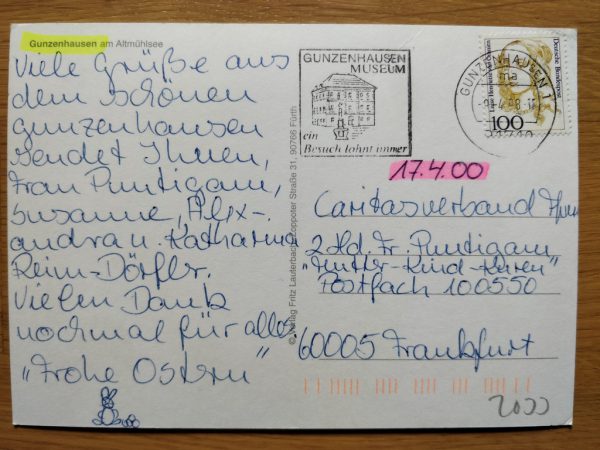 Gunzenhausen am Altmühlsee
Viele Grüße aus
dem schönen
Gunzenhausen
sendet Ihnen,
Frau Puntigam,
Susanne, Alex-
andra u. Katharina
Reim-Dörfler.
Vielen Dank
nochmal für alles
"Frohe Ostern"
© Verlag Fritz Lauterbach, Zoppoter Straße 31, 90766 Fürth
GUNZENHAUSEN
MUSEUM
ein
Besuch lohnt immer
GUNZENHAUSEN 1
ma
Deutsche Bundespost
100
17.4.00
Caritasverband
z Hd. Fr. Puntigam
"Mutter-Kind-Kuren"
Postfach 100550
60005 Frankfurt